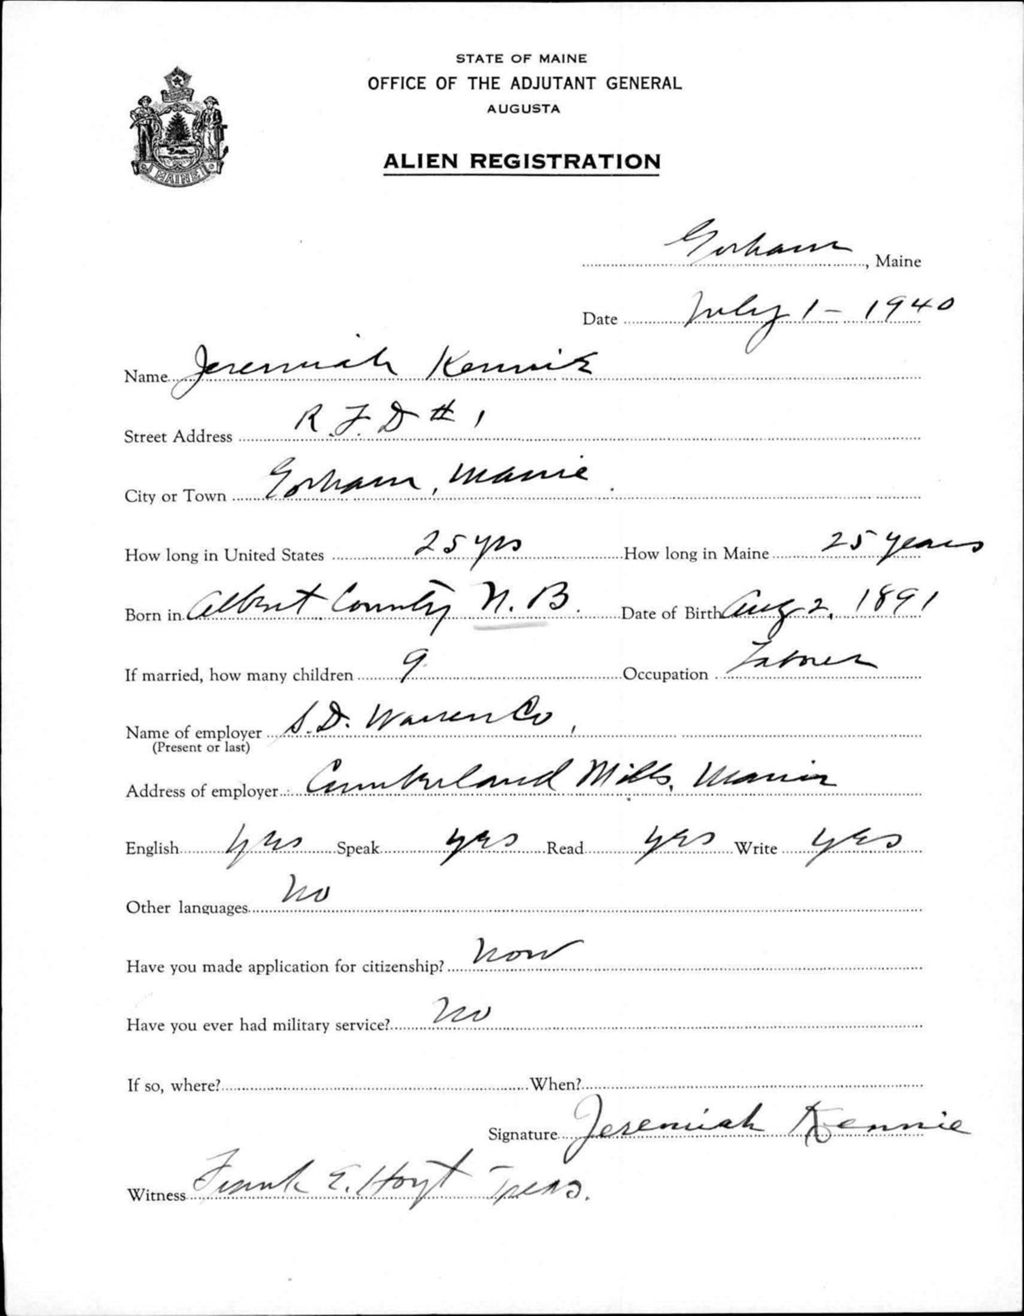 STATE OF MAINE
OFFICE OF THE ADJUTANT GENERAL
AUGUSTA
ALIEN REGISTRATION
MAINE
Gorham, Maine
Date July 1 - 1940
Name Jeremiah Kennie
Street Address R.F.D # 1
City or Town Gorham, Maine
How long in United States 25 yrs How long in Maine 25 years
Born in Albert County N.B. Date of Birth Aug 2, 1891
If married, how many children 9 Occupation Laborer
Name of employer S.D. Warren Co,
(Present or last)
Address of employer Cumberland Mills, Maine
English yes Speak yes Read yes Write yes
Other languages no
Have you made application for citizenship? now
Have you ever had military service? no
If so, where? When?
Signature Jeremiah Kennie
Witness Frank E. Hoyt Treas.